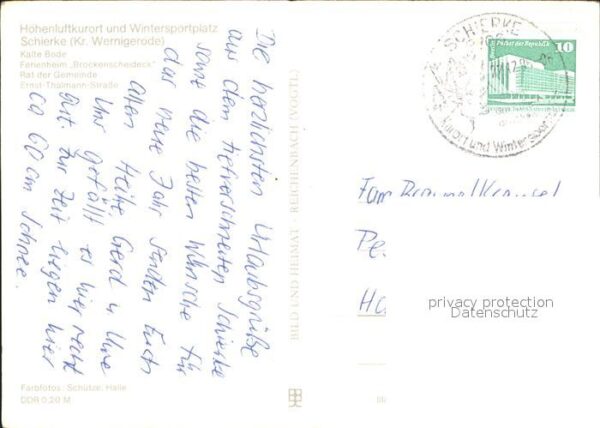 Höhenluftkurort und Wintersportplatz
Schierke (Kr. Wernigerode)
Kalte Bode
Ferienheim „Brockenscheideck"
Rat der Gemeinde
Ernst-Thälmann-Straße
Die herzlichsten Urlaubsgrüße
aus dem tiefverschneiten Schierke
sowie die besten Wünsche für
das neue Jahr senden Euch
allen Heike, Gerd u. Uwe
Uns gefällt es hier recht
gut. Zur Zeit liegen hier
ca 60 cm Schnee.
Farbfotos: Schütze, Halle
DDR 0,20 M
BILD UND HEIMAT REICHENBACH
SCHIERKE
Kurort und Wintersport
Palast der Republik
10
DDR
Fam
Pe
Ha
privacy protection
Datenschutz